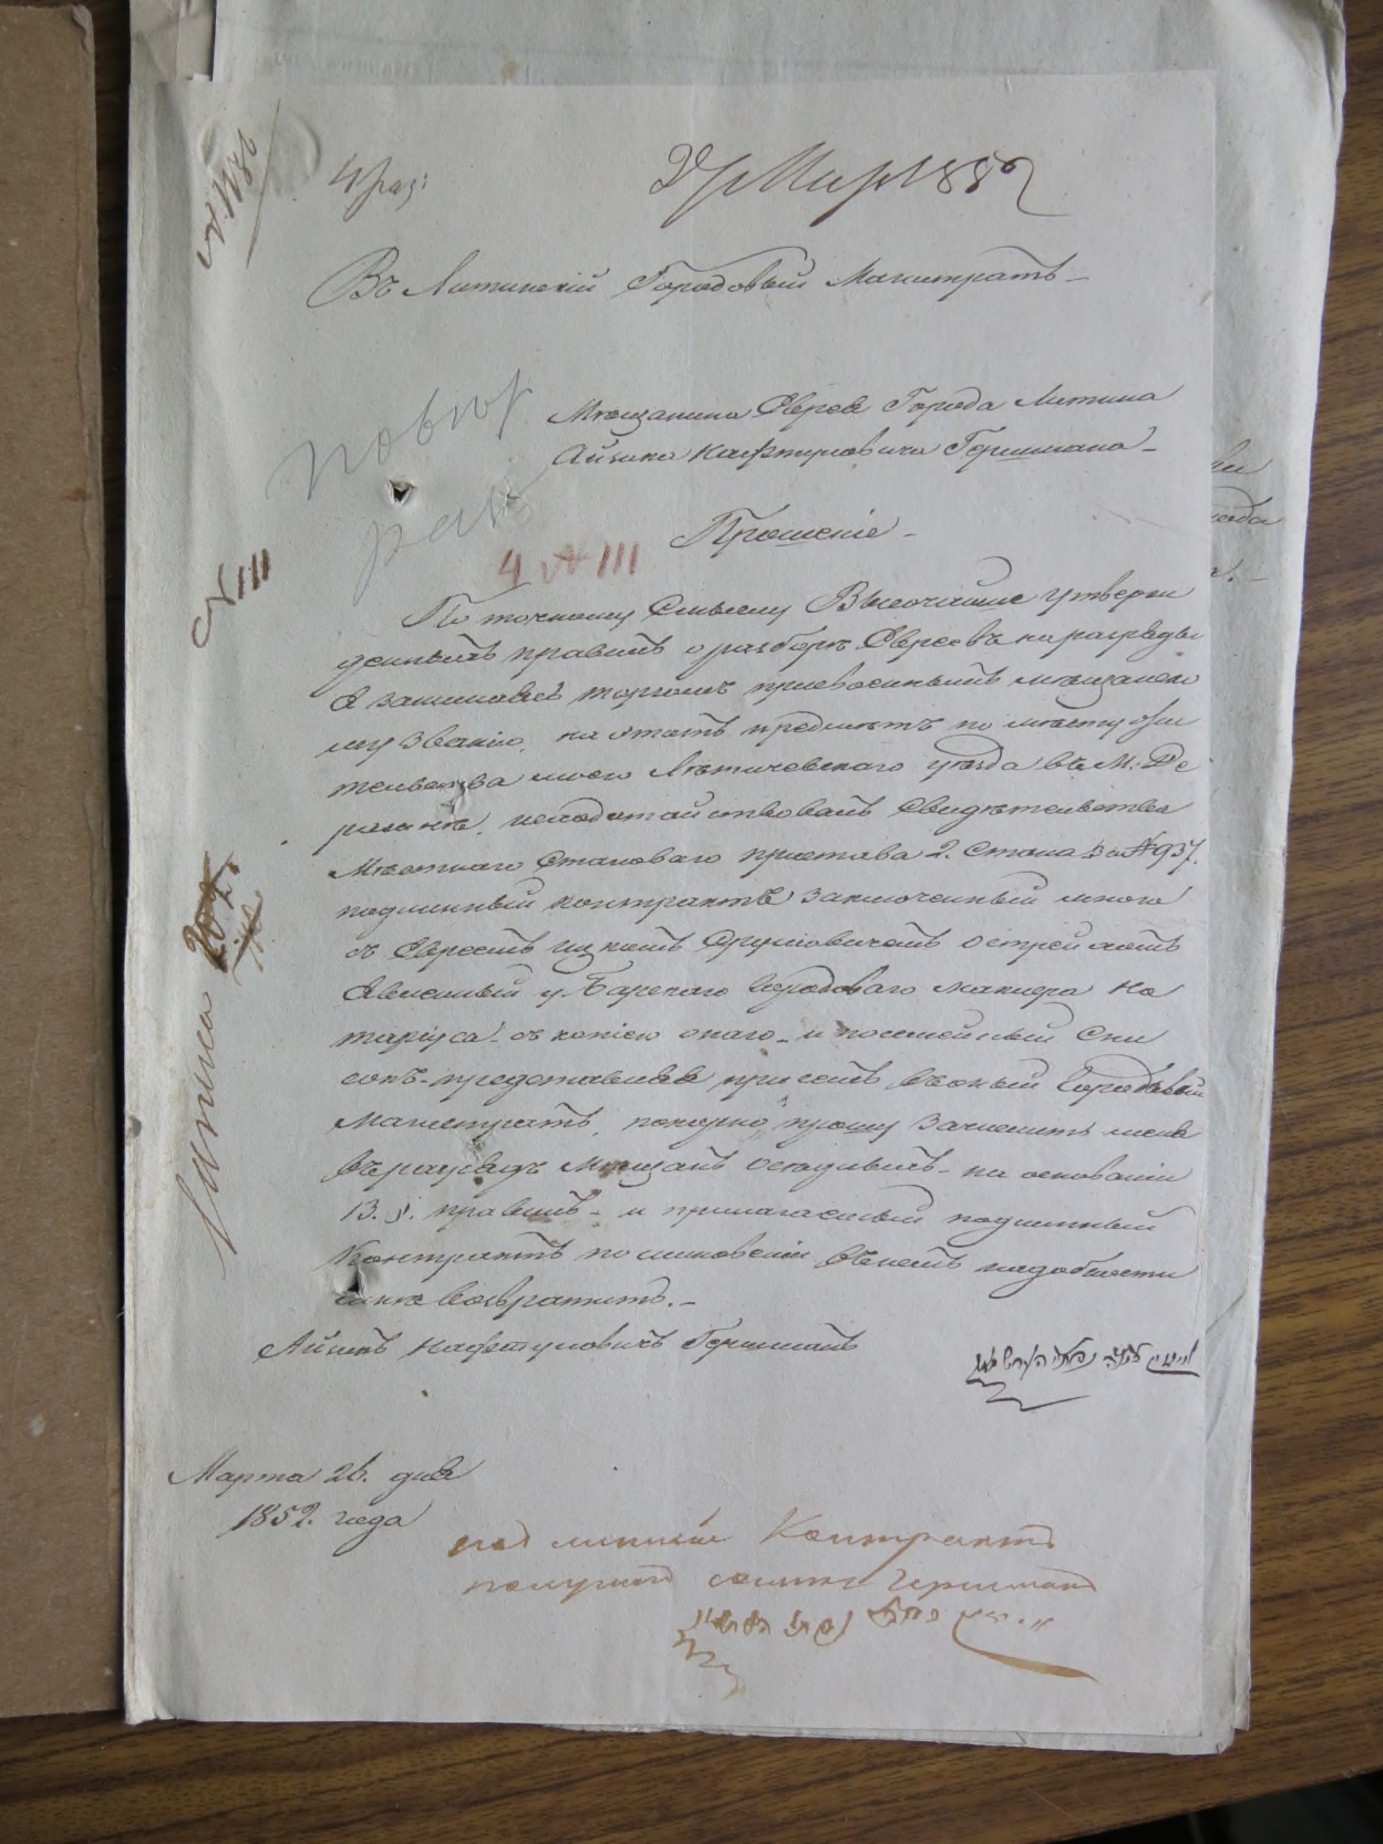 4 раз:
Въ Литинскій Городовый Магистратъ
Мещанина Еврея Города Литина
Айзика Нафтуловича Гершмана
Прошеніе
4 № 111
№ 111
По точному Смыслу Высочайше утверж
денныхъ правилъ о разборѣ Евреевъ на разряды
я занимаясь торгомъ присвоеннымъ мѣщанско
му званію, на этотъ предмѣтъ по мѣсту жи
тельства моего Летичевскаго уѣзда въ М: Де
ражнѣ, исходотайствовалъ Свидѣтельство
Мѣстнаго Становаго пристава 2. Стана за № 937.
подлинный контрактъ заключенный мною
съ Евреемъ
явленный у Барскаго Городоваго маклера Но
таріуса съ копіею онаго и посемейный Спи
сокъ представляя при семъ въ оный Городовый
Магистратъ, покорно прошу зачислить меня
въ разрядъ Мѣщанъ осѣдлыхъ на основаніи
13. §. правилъ и прилагаемый подлинный
Контрактъ по миновеніи въ немъ надобности
мнѣ возвратить.
Айзикъ Нафтуловичъ Гершманъ
Марта 26. дня
1852. года
подлинный Контрактъ
получилъ Гершманъ